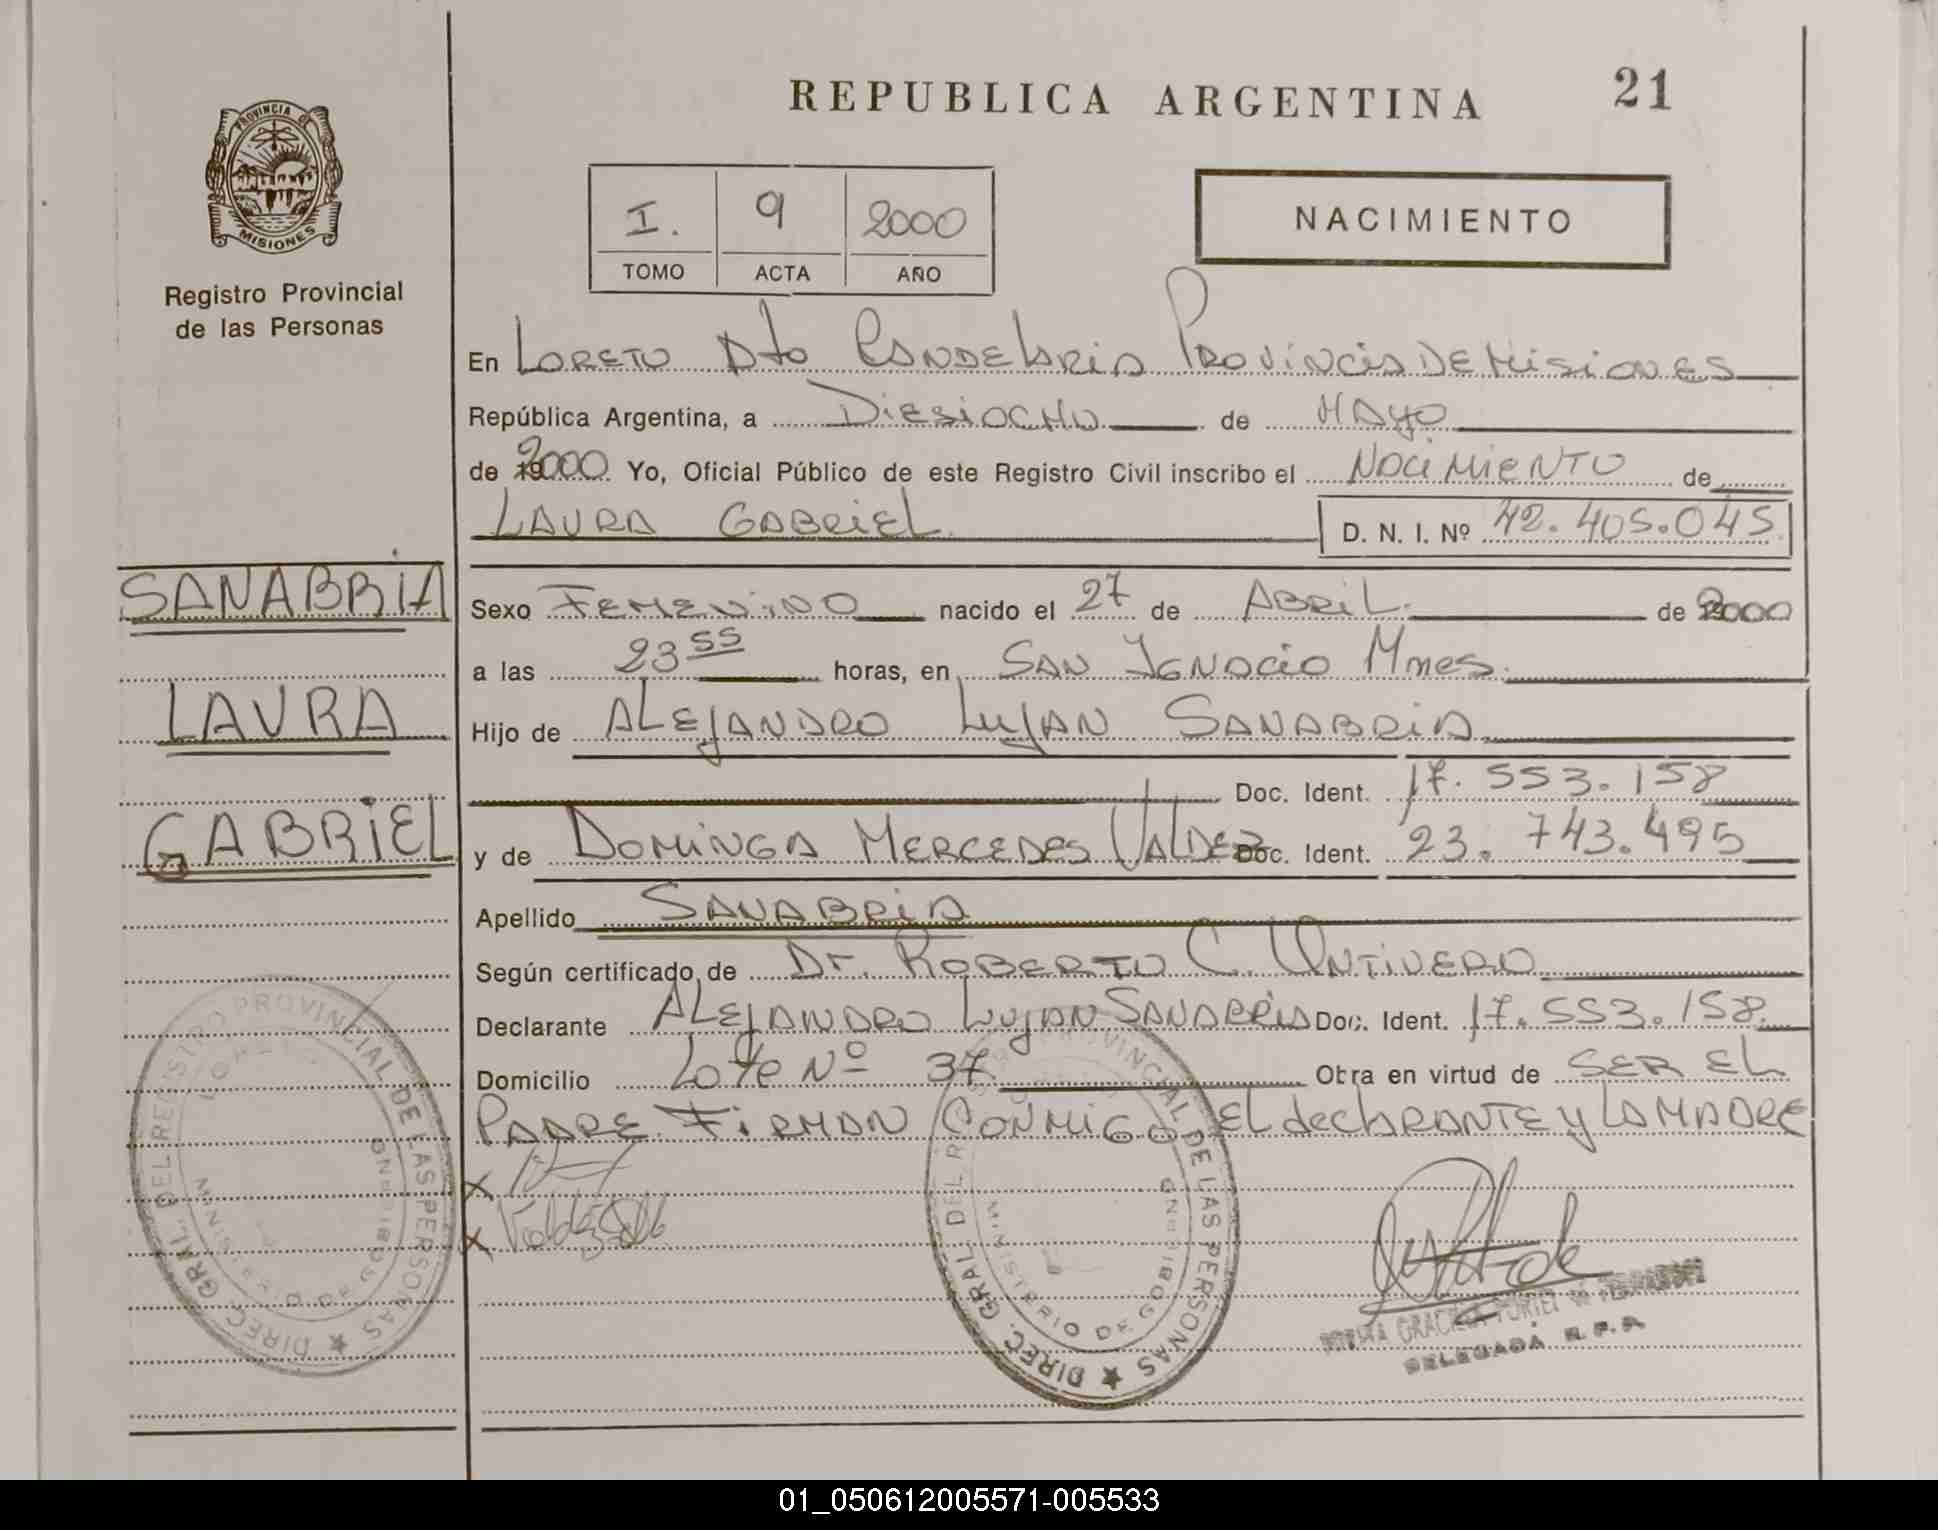 REPUBLICA ARGENTINA 21
PROVINCIA DE
MISIONES
Registro Provincial
de las Personas
I. 9 2000
TOMO ACTA AÑO
NACIMIENTO
En LORETO Dto CANDELARIA PROVINCIA DE MISIONES
República Argentina, a DIESIOCHO de MAYO
de 2000 Yo, Oficial Público de este Registro Civil inscribo el NACIMIENTO de
LAURA GABRIEL D. N. I. Nº 42.405.045
SANABRIA
LAURA
GABRIEL
Sexo FEMENINO nacido el 27 de ABRIL. de 2000
a las 23 55 horas, en SAN IGNACIO Mnes.
Hijo de ALEJANDRO LUJAN SANABRIA
Doc. Ident. 17.553.158
y de DOMINGA MERCEDES VALDEZ Doc. Ident. 23.743.495
Apellido SANABRIA
Según certificado de Dr. ROBERTO C. ONTIVERO
Declarante ALEJANDRO LUJAN SANABRIA Doc. Ident. 17.553.158.
Domicilio LOTE Nº 37 Obra en virtud de SER EL
PADRE. FIRMAN CONMIGO EL declARANTE y LA MADRE
DIREC. GRAL. DEL REGISTRO PROVINCIAL DE LAS PERSONAS
MINISTERIO DE GOBIERNO
DIREC. GRAL. DEL REGISTRO PROVINCIAL DE LAS PERSONAS
MINISTERIO DE GOBIERNO
X
X
GRACIELA
DELEGADA R.P.P.
01_050612005571-005533